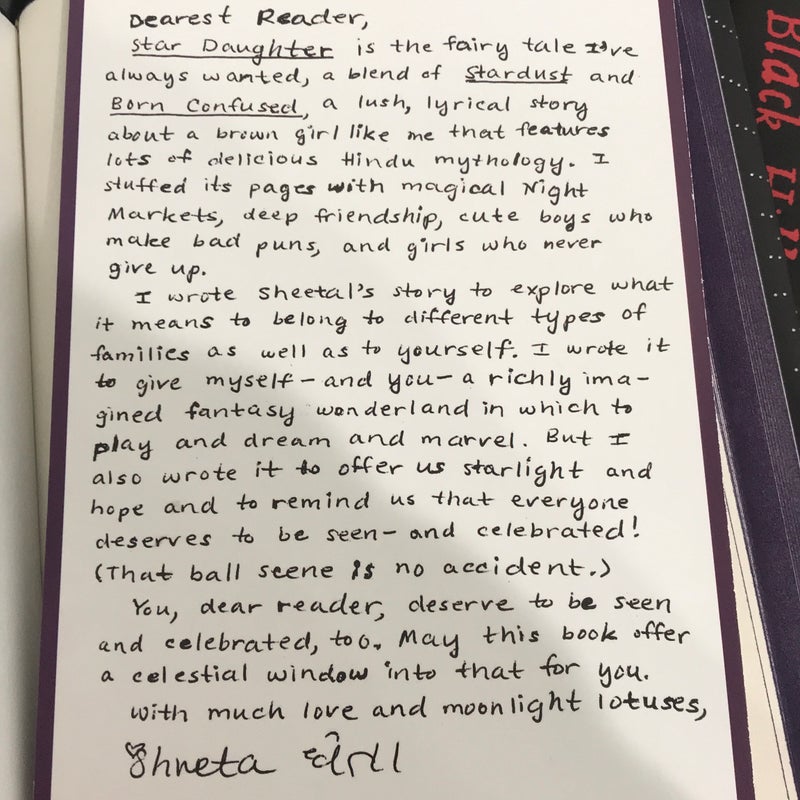 Dearest Reader,
Star Daughter is the fairy tale I've
always wanted, a blend of Stardust and
Born Confused, a lush, lyrical story
about a brown girl like me that features
lots of delicious Hindu mythology. I
stuffed its pages with magical Night
Markets, deep friendship, cute boys who
make bad puns, and girls who never
give up.
I wrote Sheetal's story to explore what
it means to belong to different types of
families as well as to yourself. I wrote it
to give myself—and you—a richly ima-
gined fantasy wonderland in which to
play and dream and marvel. But I
also wrote it to offer us starlight and
hope and to remind us that everyone
deserves to be seen—and celebrated!
(That ball scene is no accident.)
You, dear reader, deserve to be seen
and celebrated, too. May this book offer
a celestial window into that for you.
With much love and moonlight lotuses,
Black